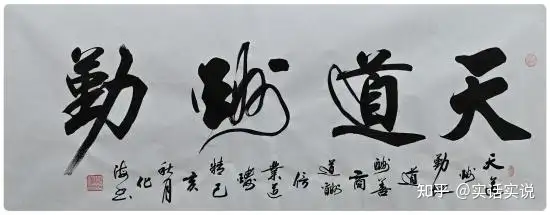 天道酬勤
天道酬勤地道酬善商道酬信業道酬精己亥秋月化海书
知乎 @实话实说